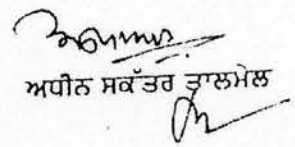 ਅਧੀਨ ਸਕੱਤਰ ਤਾਲਮੇਲ